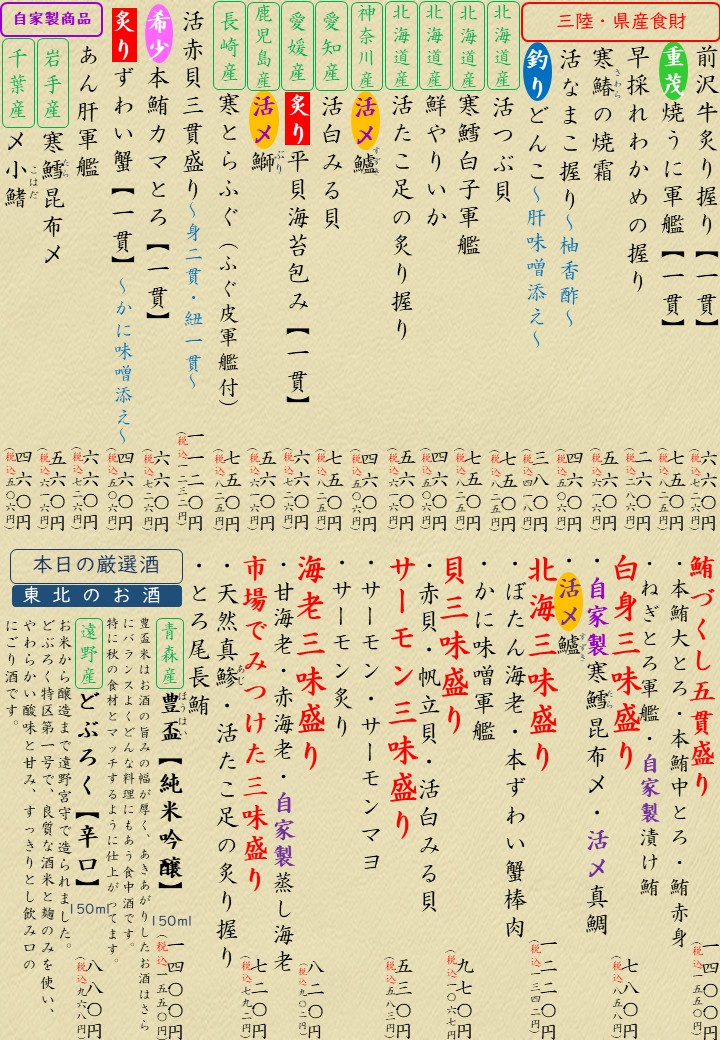 三陸・県産食財
前沢牛炙り握り【一貫】
六六〇円
(税込七二六円)
重茂焼うに軍艦【一貫】
六六〇円
(税込七二六円)
早採れわかめの握り
二六〇円
(税込二八六円)
寒鰆の焼霜
さわら
五六〇円
(税込六一六円)
活なまこ握り～柚香酢～
四六〇円
(税込五〇六円)
釣りどんこ～肝味噌添え～
三八〇円
(税込四一八円)
北海道産
活つぶ貝
七五〇円
(税込八二五円)
北海道産
寒鱈白子軍艦
七五〇円
(税込八二五円)
北海道産
鮮やりいか
四六〇円
(税込五〇六円)
北海道産
活たこ足の炙り握り
五六〇円
(税込六一六円)
神奈川産
活〆鱸
すずき
四六〇円
(税込五〇六円)
愛知産
活白みる貝
七五〇円
(税込八二五円)
愛媛産
炙り平貝海苔包み【一貫】
六六〇円
(税込七二六円)
鹿児島産
活〆鰤
ぶり
五六〇円
(税込六一六円)
長崎産
寒とらふぐ(ふぐ皮軍艦付)
七五〇円
(税込八二五円)
活赤貝三貫盛り～身二貫・紐一貫～
一一二〇円
(税込一二三二円)
希少本鮪カマとろ【一貫】
六六〇円
(税込七二六円)
炙りずわい蟹【一貫】～かに味噌添え～
四六〇円
(税込五〇六円)
自家製商品
あん肝軍艦
六六〇円
(税込七二六円)
岩手産
寒鱈昆布〆
たら
五六〇円
(税込六一六円)
千葉産
〆小鰭
こはだ
四六〇円
(税込五〇六円)
鮪づくし五貫盛り
・本鮪大とろ・本鮪中とろ・鮪赤身
・ねぎとろ軍艦・自家製漬け鮪
一四〇〇円
(税込一五四〇円)
白身三味盛り
・自家製寒鱈昆布〆・活〆真鯛
たら
・活〆鱸
すずき
七八〇円
(税込八五八円)
北海三味盛り
・ぼたん海老・本ずわい蟹棒肉
・かに味噌軍艦
一二二〇円
(税込一三四二円)
貝三味盛り
・赤貝・帆立貝・活白みる貝
九七〇円
(税込一〇六七円)
サーモン三味盛り
・サーモン・サーモンマヨ
・サーモン炙り
五三〇円
(税込五八三円)
海老三味盛り
・甘海老・赤海老・自家製蒸し海老
八二〇円
(税込九〇二円)
市場でみつけた三味盛り
・天然真鯵・活たこ足の炙り握り
あじ
・とろ尾長鮪
七二〇円
(税込七九二円)
本日の厳選酒
東北のお酒
青森産
豊盃【純米吟醸】
ほうはい
150ml
一四〇〇円
(税込一五四〇円)
豊盃米はお酒の旨みの幅が厚く、あきあがりしたお酒はさら
にバランスよくどんな料理にもあう食中酒です。
特に秋の食材とマッチするように仕上がってます。
遠野産
どぶろく【辛口】
150ml
八八〇円
(税込九六八円)
お米から醸造まで遠野宮守で造られました。
どぶろく特区第一号で、良質な酒米と麹のみを使い、
やわらかい酸味と甘み、すっきりとし飲み口の
にごり酒です。